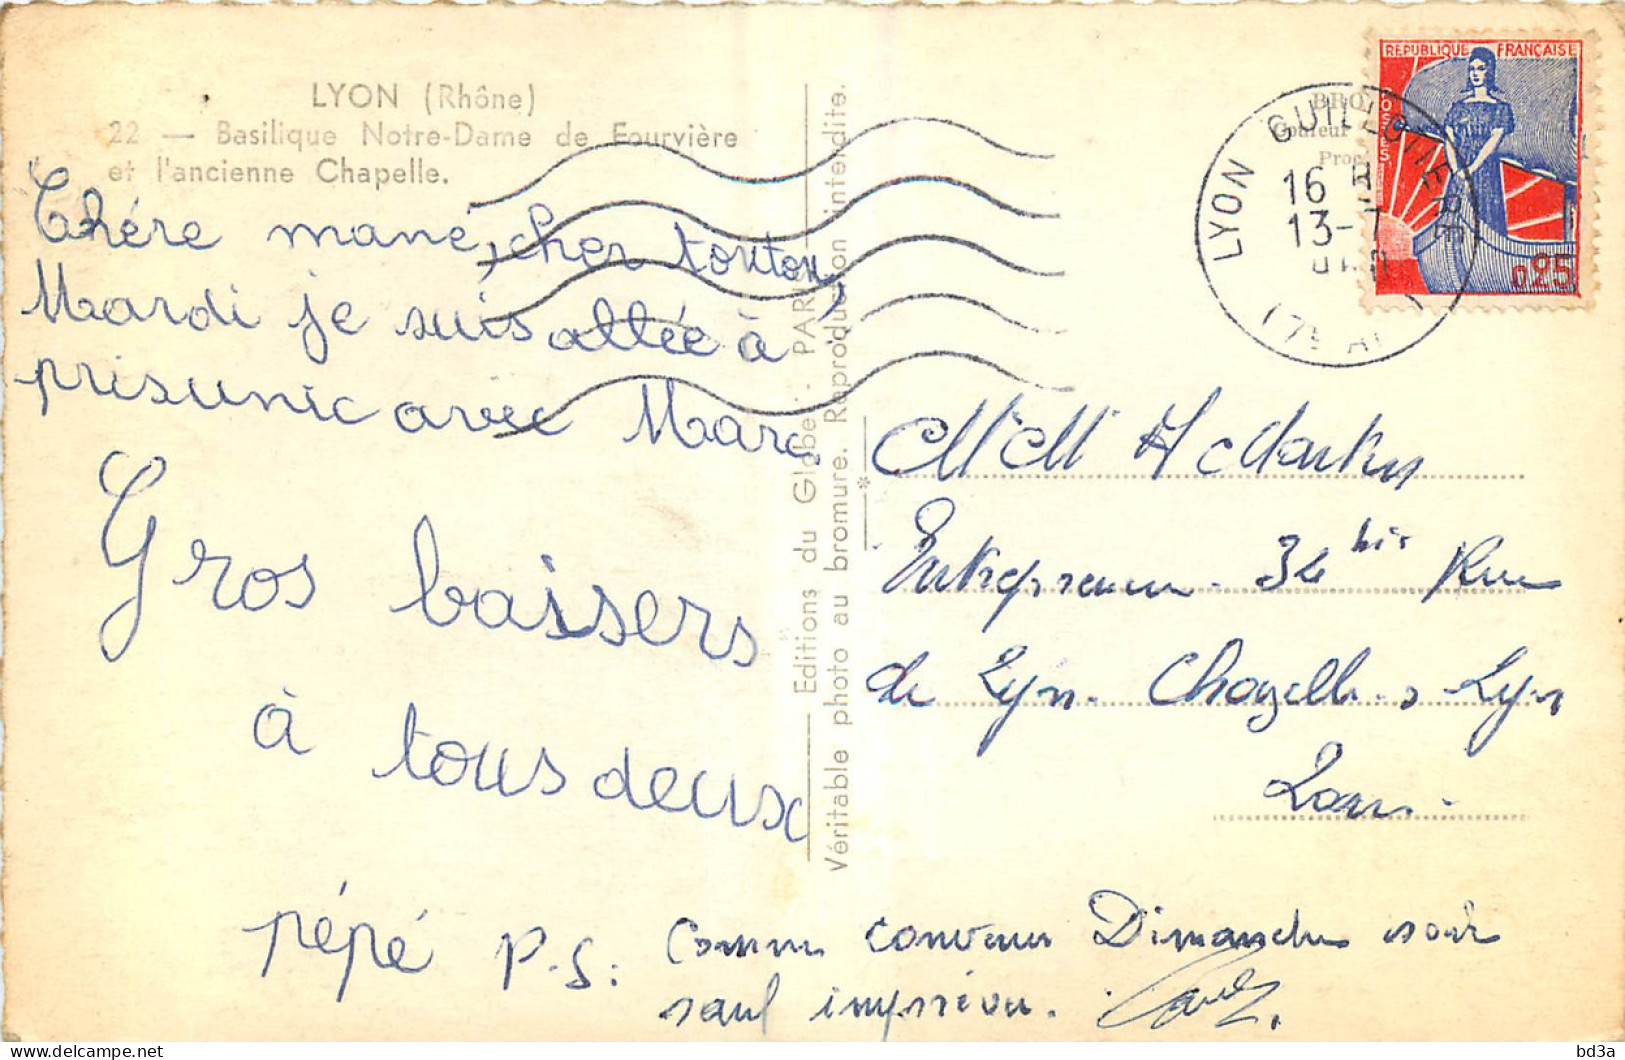 LYON (Rhône)
22 — Basilique Notre-Dame de Fourvière
et l'ancienne Chapelle.
Chére mané, cher tonton,
Mardi je suis allée à
prisunic avec Marc.
Gros baisers
à tous deux
pépé
P.S: Comme convenu Dimanche soir
sauf imprévu.
Editions du Globe - PARIS
Véritable photo au bromure. Reproduction interdite.
REPUBLIQUE FRANÇAISE
POSTES
0,25
LYON GUILLOTIERE
16 H
13-7
BRO
Couleur
M M
Entrepreneur 34 bis Rue
de Lyon Chazelles s Lyon
Loire
bd3a